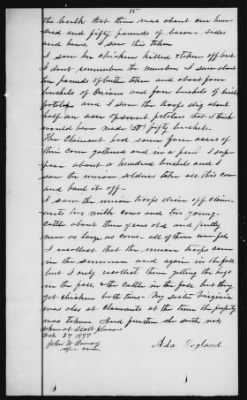 15
the bulk that there was about one hun-
dred and fifty pounds of bacon sides
and hams I saw this taken
I saw her chickens killed & taken off but
I don't remember the number I saw about
ten pounds of butter taken and about four
bushels of onions and four bushels of irish
potatoes and I saw the troops dig about
half an acre of sweet potatoes that I think
would have made fifty bushels.
The Claimant had some four acres of
this Corn gathered and in a pen I sup-
pose about a hundred bushels and I
saw the union soldiers take all this corn
and haul it off
I saw the union troops drive off claim-
ants two milk cows and two young
cattle about three years old and pretty
near as large as cows. all of them
I recollect that the union troops came
in the summer and again in the fall
but I only recollect them getting the hogs
in the fall & the Cattle in the fall but they
got chickens both times. My sister Virginia
was also at claimants at the time the property
was taken And further she saith not.
Oct 27 1877
John W
Ada